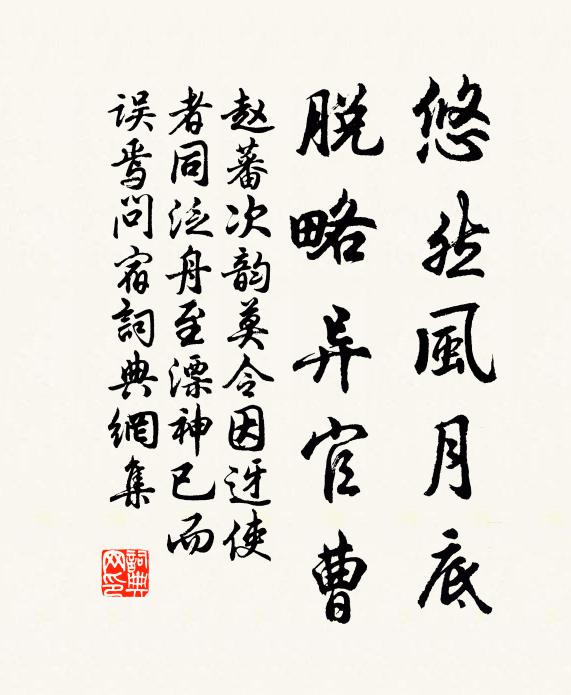 悠然風月底
脱略异官曹
赵蕃次韵莫令因迓使
者同泛舟至溧神已而
误焉问宿詞典網集
詞典網印